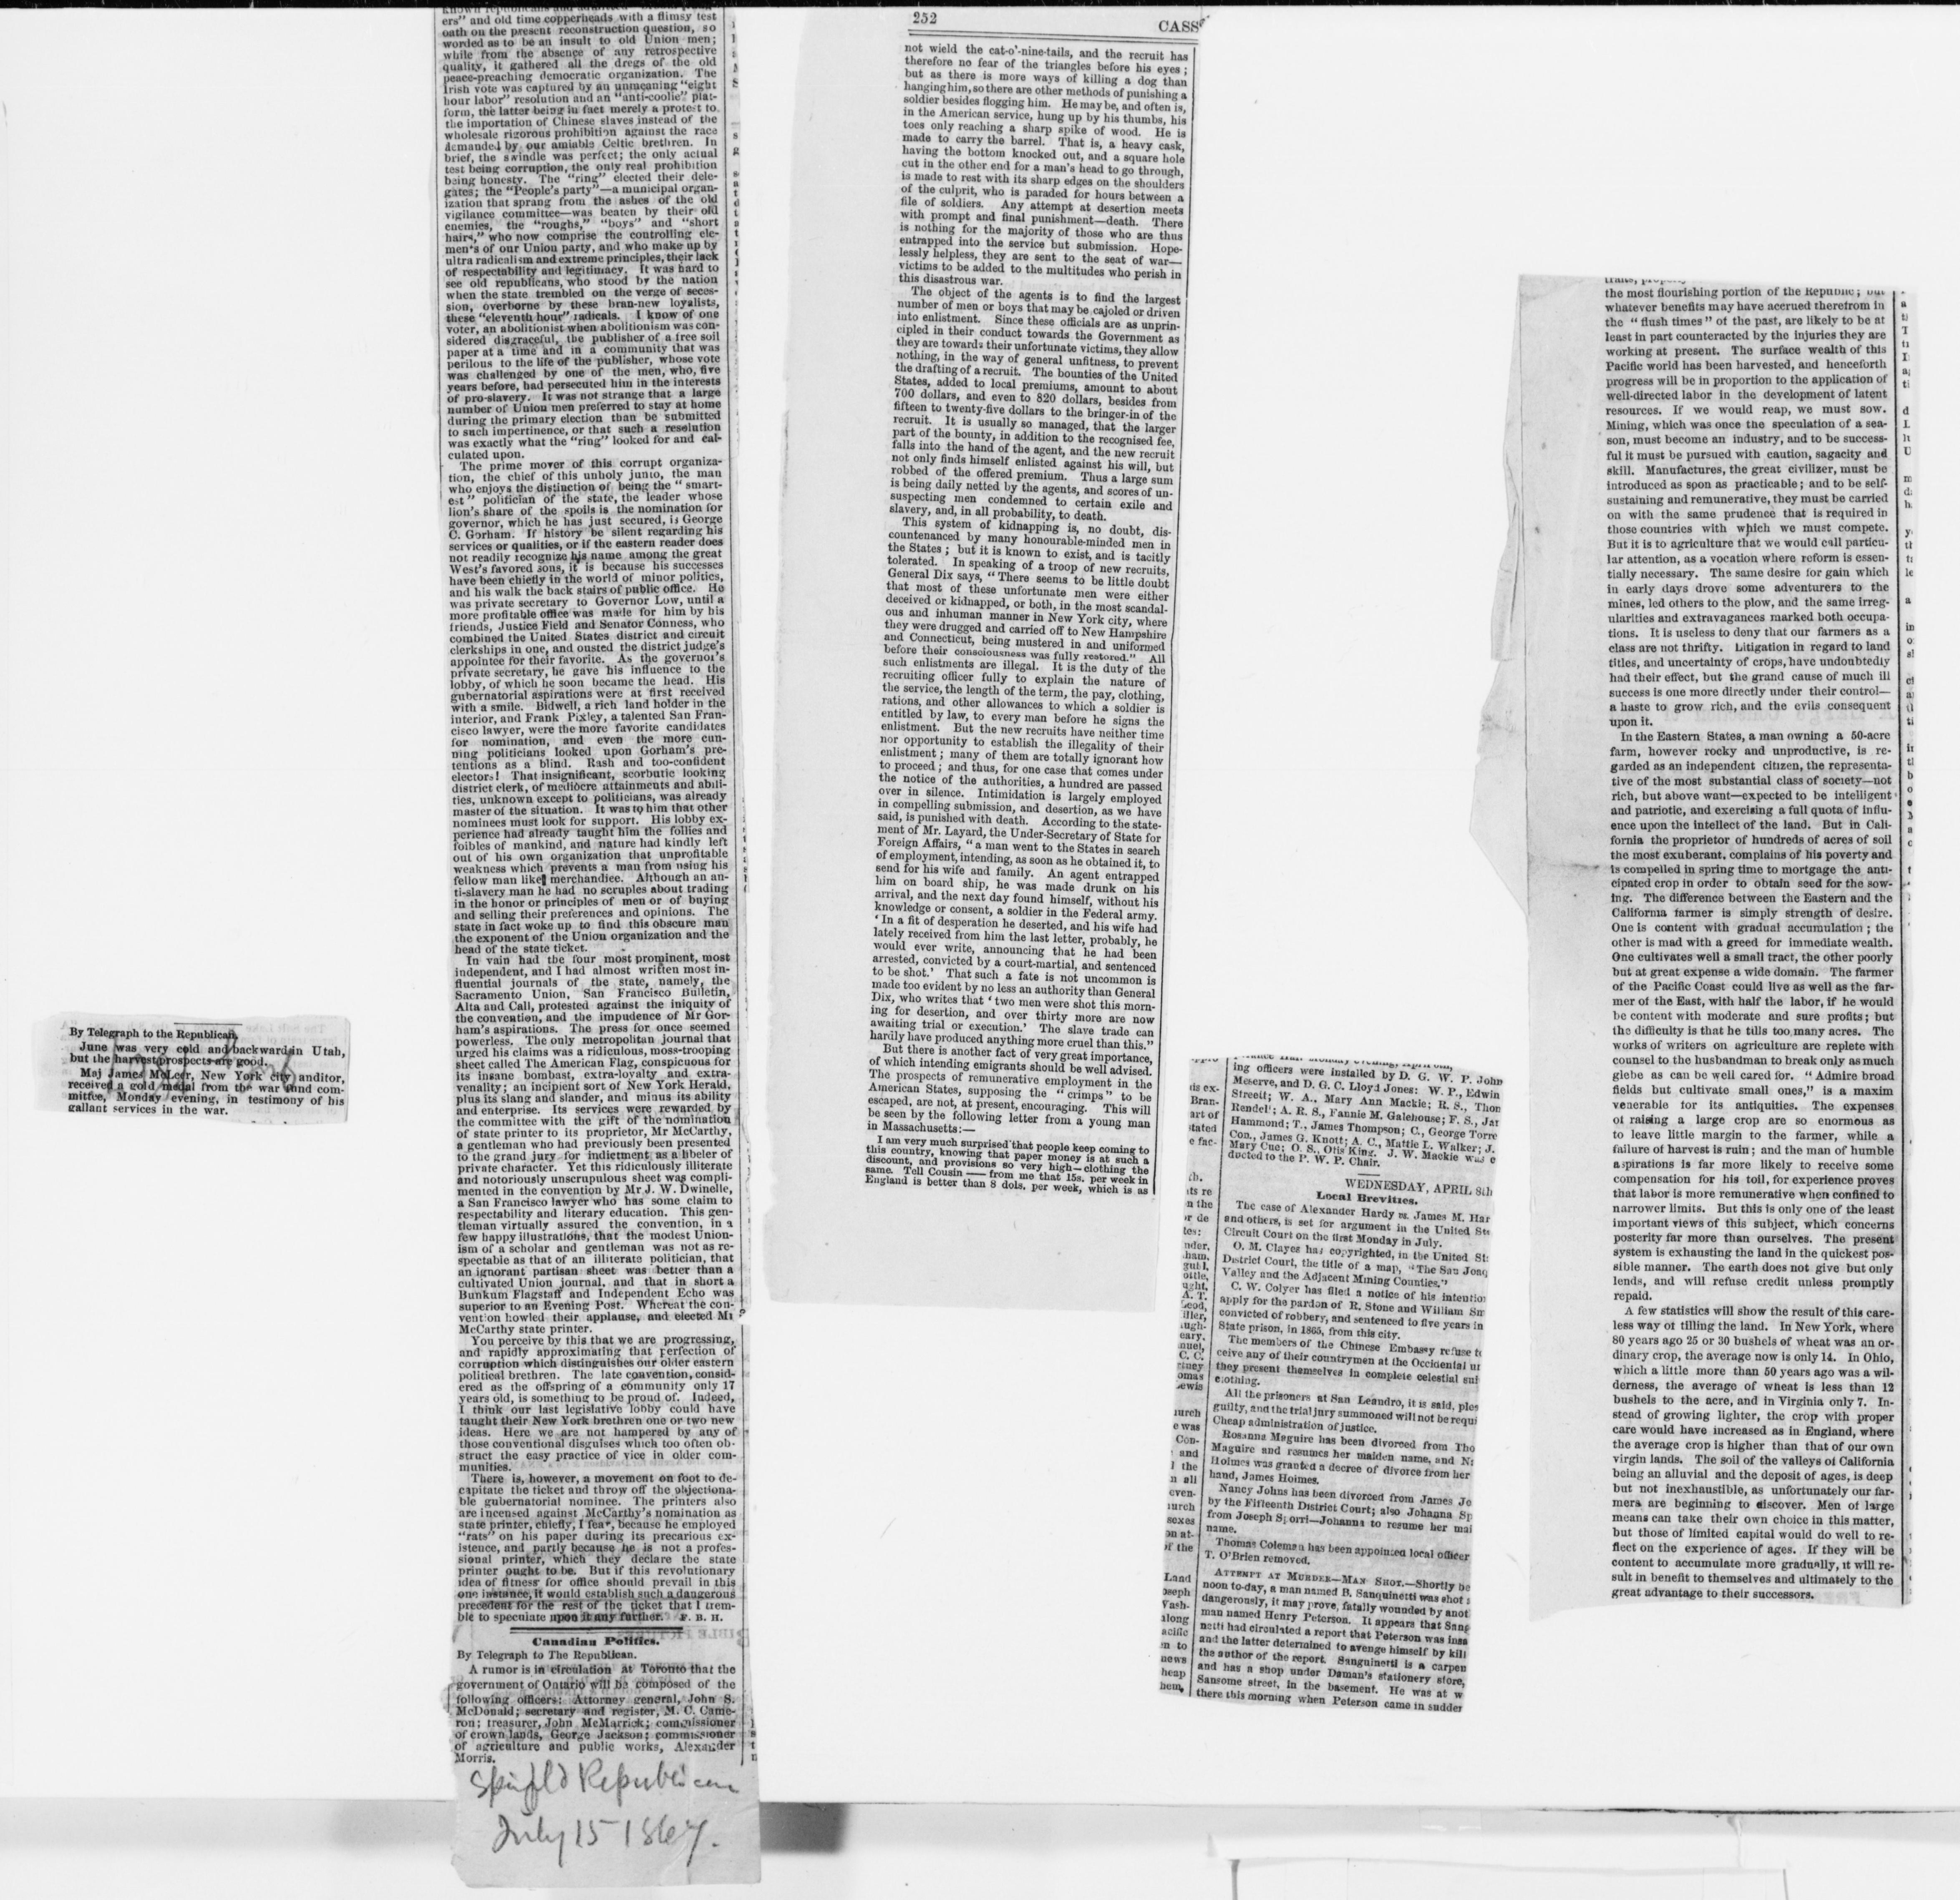 By Telegraph to the Republican.
June was very cold and backward in Utah,
but the harvest prospects are good.
Maj James McLeer, New York city auditor,
received a gold medal from the war fund com-
mittee, Monday evening, in testimony of his
gallant services in the war.
ers" and old time copperheads with a flimsy test
oath on the present reconstruction question, so
worded as to be an insult to old Union men;
while from the absence of any retrospective
quality, it gathered all the dregs of the old
peace-preaching democratic organization. The
Irish vote was captured by an unmeaning "eight
hour labor" resolution and an "anti-coolie" plat-
form, the latter being in fact merely a protest to
the importation of Chinese slaves instead of the
wholesale rigorous prohibition against the race
demanded by our amiable Celtic brethren. In
brief, the swindle was perfect; the only actual
test being corruption, the only real prohibition
being honesty. The "ring" elected their dele-
gates; the "People's party"—a municipal organ-
ization that sprang from the ashes of the old
vigilance committee—was beaten by their old
enemies, the "roughs," "boys" and "short
hairs," who now comprise the controlling ele-
ments of our Union party, and who make up by
ultra radicalism and extreme principles, their lack
of respectability and legitimacy. It was hard to
see old republicans, who stood by the nation
when the state trembled on the verge of seces-
sion, overborne by these bran-new loyalists,
these "eleventh hour" radicals. I know of one
voter, an abolitionist when abolitionism was con-
sidered disgraceful, the publisher of a free soil
paper at a time and in a community that was
perilous to the life of the publisher, whose vote
was challenged by one of the men, who, five
years before, had persecuted him in the interests
of pro-slavery. It was not strange that a large
number of Union men preferred to stay at home
during the primary election than be submitted
to such impertinence, or that such a resolution
was exactly what the "ring" looked for and cal-
culated upon.
The prime mover of this corrupt organiza-
tion, the chief of this unholy junto, the man
who enjoys the distinction of being the "smart-
est" politician of the state, the leader whose
lion's share of the spoils is the nomination for
governor, which he has just secured, is George
C. Gorham. If history be silent regarding his
services or qualities, or if the eastern reader does
not readily recognize his name among the great
West's favored sons, it is because his successes
have been chiefly in the world of minor politics,
and his walk the back stairs of public office. He
was private secretary to Governor Low, until a
more profitable office was made for him by his
friends, Justice Field and Senator Conness, who
combined the United States district and circuit
clerkships in one, and ousted the district judge's
appointee for their favorite. As the governor's
private secretary, he gave his influence to the
lobby, of which he soon became the head. His
gubernatorial aspirations were at first received
with a smile. Bidwell, a rich land holder in the
interior, and Frank Pixley, a talented San Fran-
cisco lawyer, were the more favorite candidates
for nomination, and even the more cun-
ning politicians looked upon Gorham's pre-
tentions as a blind. Rash and too-confident
electors! That insignificant, scorbutic looking
district clerk, of mediocre attainments and abili-
ties, unknown except to politicians, was already
master of the situation. It was to him that other
nominees must look for support. His lobby ex-
perience had already taught him the follies and
foibles of mankind, and nature had kindly left
out of his own organization that unprofitable
weakness which prevents a man from using his
fellow man like merchandice. Although an an-
ti-slavery man he had no scruples about trading
in the honor or principles of men or of buying
and selling their preferences and opinions. The
state in fact woke up to find this obscure man
the exponent of the Union organization and the
head of the state ticket.
In vain had the four most prominent, most
independent, and I had almost written most in-
fluential journals of the state, namely, the
Sacramento Union, San Francisco Bulletin,
Alta and Call, protested against the iniquity of
the convention, and the impudence of Mr Gor-
ham's aspirations. The press for once seemed
powerless. The only metropolitan journal that
urged his claims was a ridiculous, moss-trooping
sheet called The American Flag, conspicous for
its insane bombast, extra-loyalty and extra-
venality; an incipient sort of New York Herald,
plus its slang and slander, and minus its ability
and enterprise. Its services were rewarded by
the committee with the gift of the nomination
of state printer to its proprietor, Mr McCarthy,
a gentleman who had previously been presented
to the grand jury for indictment as a libeler of
private character. Yet this ridiculously illiterate
and notoriously unscrupulous sheet was compli-
mented in the convention by Mr J. W. Dwinelle,
a San Francisco lawyer who has some claim to
respectability and literary education. This gen-
tleman virtually assured the convention, in a
few happy illustrations, that the modest Union-
ism of a scholar and gentleman was not as re-
spectable as that of an illiterate politician, that
an ignorant partisan sheet was better than a
cultivated Union journal, and that in short a
Bunkum Flagstaff and Independent Echo was
superior to an Evening Post. Whereat the con-
vention howled their applause, and elected Mr
McCarthy state printer.
You perceive by this that we are progressing,
and rapidly approximating that perfection of
corruption which distinguishes our older eastern
political brethren. The late convention, consid-
ered as the offspring of a community only 17
years old, is something to be proud of. Indeed,
I think our last legislative lobby could have
taught their New York brethren one or two new
ideas. Here we are not hampered by any of
those conventional disguises which too often ob-
struct the easy practice of vice in older com-
munities.
There is, however, a movement on foot to de-
capitate the ticket and throw off the objectiona-
ble gubernatorial nominee. The printers also
are incensed against McCarthy's nomination as
state printer, chiefly, I fear, because he employed
"rats" on his paper during its precarious ex-
istence, and partly because he is not a profes-
sional printer, which they declare the state
printer ought to be. But if this revolutionary
idea of fitness for office should prevail in this
one instance, it would establish such a dangerous
precedent for the rest of the ticket that I trem-
ble to speculate upon it any further. F. B. H.
Canadian Politics.
By Telegraph to The Republican.
A rumor is in circulation at Toronto that the
government of Ontario will be composed of the
following officers: Attorney general, John S.
McDonald; secretary and register, M. C. Came-
ron; treasurer, John McMarrick; commissioner
of crown lands, George Jackson; commissioner
of agriculture and public works, Alexander
Morris.
Spinfld Republican
July 15 1867.
252
CASS
not wield the cat-o'-nine-tails, and the recruit has
therefore no fear of the triangles before his eyes;
but as there is more ways of killing a dog than
hanging him, so there are other methods of punishing a
soldier besides flogging him. He may be, and often is,
in the American service, hung up by his thumbs, his
toes only reaching a sharp spike of wood. He is
made to carry the barrel. That is, a heavy cask,
having the bottom knocked out, and a square hole
cut in the other end for a man's head to go through,
is made to rest with its sharp edges on the shoulders
of the culprit, who is paraded for hours between a
file of soldiers. Any attempt at desertion meets
with prompt and final punishment—death. There
is nothing for the majority of those who are thus
entrapped into the service but submission. Hope-
lessly helpless, they are sent to the seat of war—
victims to be added to the multitudes who perish in
this disastrous war.
The object of the agents is to find the largest
number of men or boys that may be cajoled or driven
into enlistment. Since these officials are as unprin-
cipled in their conduct towards the Government as
they are towards their unfortunate victims, they allow
nothing, in the way of general unfitness, to prevent
the drafting of a recruit. The bounties of the United
States, added to local premiums, amount to about
700 dollars, and even to 820 dollars, besides from
fifteen to twenty-five dollars to the bringer-in of the
recruit. It is usually so managed, that the larger
part of the bounty, in addition to the recognised fee,
falls into the hand of the agent, and the new recruit
not only finds himself enlisted against his will, but
robbed of the offered premium. Thus a large sum
is being daily netted by the agents, and scores of un-
suspecting men condemned to certain exile and
slavery, and, in all probability, to death.
This system of kidnapping is, no doubt, dis-
countenanced by many honourable-minded men in
the States; but it is known to exist, and is tacitly
tolerated. In speaking of a troop of new recruits,
General Dix says, "There seems to be little doubt
that most of these unfortunate men were either
deceived or kidnapped, or both, in the most scandal-
ous and inhuman manner in New York city, where
they were drugged and carried off to New Hampshire
and Connecticut, being mustered in and uniformed
before their consciousness was fully restored." All
such enlistments are illegal. It is the duty of the
recruiting officer fully to explain the nature of
the service, the length of the term, the pay, clothing,
rations, and other allowances to which a soldier is
entitled by law, to every man before he signs the
enlistment. But the new recruits have neither time
nor opportunity to establish the illegality of their
enlistment; many of them are totally ignorant how
to proceed; and thus, for one case that comes under
the notice of the authorities, a hundred are passed
over in silence. Intimidation is largely employed
in compelling submission, and desertion, as we have
said, is punished with death. According to the state-
ment of Mr. Layard, the Under-Secretary of State for
Foreign Affairs, "a man went to the States in search
of employment, intending, as soon as he obtained it, to
send for his wife and family. An agent entrapped
him on board ship, he was made drunk on his
arrival, and the next day found himself, without his
knowledge or consent, a soldier in the Federal army.
'In a fit of desperation he deserted, and his wife had
lately received from him the last letter, probably, he
would ever write, announcing that he had been
arrested, convicted by a court-martial, and sentenced
to be shot.' That such a fate is not uncommon is
made too evident by no less an authority than General
Dix, who writes that 'two men were shot this morn-
ing for desertion, and over thirty more are now
awaiting trial or execution.' The slave trade can
hardly have produced anything more cruel than this."
But there is another fact of very great importance,
of which intending emigrants should be well advised.
The prospects of remunerative employment in the
American States, supposing the "crimps" to be
escaped, are not, at present, encouraging. This will
be seen by the following letter from a young man
in Massachusetts:—
I am very much surprised that people keep coming to
this country, knowing that paper money is at such a
discount, and provisions so very high—clothing the
same. Tell Cousin —— from me that 15s. per week in
England is better than 8 dols. per week, which is as
ing officers were installed by D. G. W. P. John
Meserve, and D. G. C. Lloyd Jones: W. P., Edwin
Streeit; W. A., Mary Ann Mackie; R. S., Thon
Rendel'; A. R. S., Fannie M. Galehouse; F. S., Jar
Hammond; T., James Thompson; C., George Torre
Con., James G. Knott; A. C., Mattie L. Walker; J.
Mary Cue; O. S., Otis King. J. W. Mackie was c
ducted to the P. W. P. Chair.
WEDNESDAY, APRIL 8th
Local Brevities.
The case of Alexander Hardy vs. James M. Har
and others, is set for argument in the United Sta
Circuit Court on the first Monday in July.
O. M. Clayes has copyrighted, in the United St:
District Court, the title of a map, "The San Joaq
Valley and the Adjacent Mining Counties."
C. W. Colyer has filed a notice of his intentio
apply for the pardon of R. Stone and William Sm
convicted of robbery, and sentenced to five years in
State prison, in 1865, from this city.
The members of the Chinese Embassy refuse t
ceive any of their countrymen at the Occidental ur
they present themselves in complete celestial sui
clothing.
All the prisoners at San Leandro, it is said, plea
guilty, and the trial jury summoned will not be requi
Cheap administration of justice.
Rosanna Maguire has been divorced from Tho
Maguire and resumes her maiden name, and N:
Holmes was granted a decree of divorce from her
hand, James Holmes.
Nancy Johns has been divorced from James Jo
by the Fifteenth District Court; also Johanna Sp
from Joseph Sporri—Johanna to resume her mai
name.
Thomas Coleman has been appointed local officer
T. O'Brien removed.
ATTEMPT AT MURDER—MAN SHOT.—Shortly be
noon to-day, a man named B. Sanquinetti was shot :
dangerously, it may prove, fatally wounded by anot
man named Henry Peterson. It appears that Sang
netti had circulated a report that Peterson was insa
and the latter determined to avenge himself by kill
the author of the report. Sanguinetti is a carpen
and has a shop under Daman's stationery store,
Sansome street, in the basement. He was at w
there this morning when Peterson came in sudder
the most flourishing portion of the Republic; but
whatever benefits may have accrued therefrom in
the "flush times" of the past, are likely to be at
least in part counteracted by the injuries they are
working at present. The surface wealth of this
Pacific world has been harvested, and henceforth
progress will be in proportion to the application of
well-directed labor in the development of latent
resources. If we would reap, we must sow.
Mining, which was once the speculation of a sea-
son, must become an industry, and to be success-
ful it must be pursued with caution, sagacity and
skill. Manufactures, the great civilizer, must be
introduced as spon as practicable; and to be self-
sustaining and remunerative, they must be carried
on with the same prudence that is required in
those countries with which we must compete.
But it is to agriculture that we would call particu-
lar attention, as a vocation where reform is essen-
tially necessary. The same desire for gain which
in early days drove some adventurers to the
mines, led others to the plow, and the same irreg-
ularities and extravagances marked both occupa-
tions. It is useless to deny that our farmers as a
class are not thrifty. Litigation in regard to land
titles, and uncertainty of crops, have undoubtedly
had their effect, but the grand cause of much ill
success is one more directly under their control—
a haste to grow rich, and the evils consequent
upon it.
In the Eastern States, a man owning a 50-acre
farm, however rocky and unproductive, is re-
garded as an independent citizen, the representa-
tive of the most substantial class of society—not
rich, but above want—expected to be intelligent
and patriotic, and exercising a full quota of influ-
ence upon the intellect of the land. But in Cali-
fornia the proprietor of hundreds of acres of soil
the most exuberant, complains of his poverty and
is compelled in spring time to mortgage the anti-
cipated crop in order to obtain seed for the sow-
ing. The difference between the Eastern and the
California farmer is simply strength of desire.
One is content with gradual accumulation; the
other is mad with a greed for immediate wealth.
One cultivates well a small tract, the other poorly
but at great expense a wide domain. The farmer
of the Pacific Coast could live as well as the far-
mer of the East, with half the labor, if he would
be content with moderate and sure profits; but
the difficulty is that he tills too many acres. The
works of writers on agriculture are replete with
counsel to the husbandman to break only as much
glebe as can be well cared for. "Admire broad
fields but cultivate small ones," is a maxim
venerable for its antiquities. The expenses
of raising a large crop are so enormous as
to leave little margin to the farmer, while a
failure of harvest is ruin; and the man of humble
aspirations is far more likely to receive some
compensation for his toil, for experience proves
that labor is more remunerative when confined to
narrower limits. But this is only one of the least
important views of this subject, which concerns
posterity far more than ourselves. The present
system is exhausting the land in the quickest pos-
sible manner. The earth does not give but only
lends, and will refuse credit unless promptly
repaid.
A few statistics will show the result of this care-
less way of tilling the land. In New York, where
80 years ago 25 or 30 bushels of wheat was an or-
dinary crop, the average now is only 14. In Ohio,
which a little more than 50 years ago was a wil-
derness, the average of wheat is less than 12
bushels to the acre, and in Virginia only 7. In-
stead of growing lighter, the crop with proper
care would have increased as in England, where
the average crop is higher than that of our own
virgin lands. The soil of the valleys of California
being an alluvial and the deposit of ages, is deep
but not inexhaustible, as unfortunately our far-
mers are beginning to discover. Men of large
means can take their own choice in this matter,
but those of limited capital would do well to re-
flect on the experience of ages. If they will be
content to accumulate more gradually, it will re-
sult in benefit to themselves and ultimately to the
great advantage to their successors.